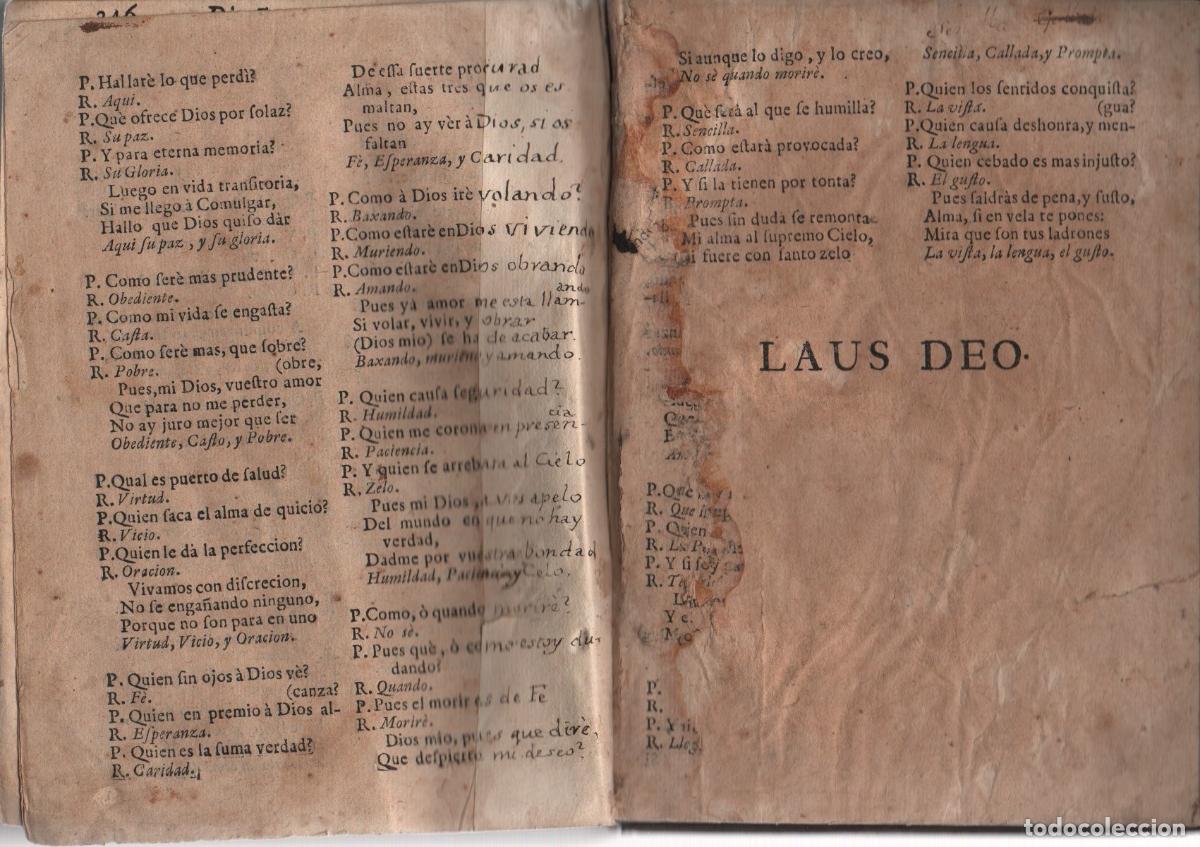 246
P. Hallarè lo que perdì?
R. Aqui.
P. Què ofrece Dios por solaz?
R. Su paz.
P. Y para eterna memoria?
R. Su Gloria.
Luego en vida transitoria,
Si me llego à Comulgar,
Hallo que Dios quiso dàr
Aqui su paz, y su gloria.
P. Como serè mas prudente?
R. Obediente.
P. Como mi vida se engasta?
R. Casta.
P. Como serè mas, que sobre?
R. Pobre. (obre,
Pues, mi Dios, vuestro amor
Que para no me perder,
No ay juro mejor que ser
Obediente, Casto, y Pobre.
P. Qual es puerto de salud?
R. Virtud.
P. Quien saca el alma de quicio?
R. Vicio.
P. Quien le dà la perfeccion?
R. Oracion.
Vivamos con discrecion,
No se engañando ninguno,
Porque no son para en uno
Virtud, Vicio, y Oracion.
P. Quien sin ojos à Dios vè?
R. Fè. (canza?
P. Quien en premio à Dios al-
R. Esperanza.
P. Quien es la suma verdad?
R. Caridad.
De essa suerte procurad
Alma, estas tres que os es
maltan,
Pues no ay vèr à Dios, si os
faltan
Fè, Esperanza, y Caridad.
P. Como à Dios irè volando?
R. Baxando.
P. Como estarè en Dios viviendo
R. Muriendo.
P. Como estarè en Dios obrando
R. Amando. ando
Pues yà amor me esta llam-
Si volar, vivir, y obrar
(Dios mio) se ha de acabar.
Baxando, muriendo y amando.
P. Quien causa seguridad?
R. Humildad. cia
P. Quien me corona en presen-
R. Paciencia.
P. Y quien se arrebata al Cielo
R. Zelo.
Pues mi Dios, a vos apelo
Del mundo en que no hay
verdad,
Dadme por vuestra bondad
Humildad, Paciencia y Celo.
P. Como, ò quando morirè?
R. No sè.
P. Pues què, ò como estoy du-
dando?
R. Quando.
P. Pues el morir es de Fè
R. Morirè.
Dios mio, pues que dirè,
Que despierto mi deseo?
Si aunque lo digo, y lo creo,
No sè quando morirè.
P. Què serà al que se humilla?
R. Sencilla.
P. Como estarà provocada?
R. Callada.
P. Y si la tienen por tonta?
R. Prompta.
Pues sin duda se remonta
Mi alma al supremo Cielo,
si fuere con santo zelo
Sencilla, Callada, y Prompta.
P. Quien los sentidos conquista?
R. La vista. (gua?
P. Quien causa deshonra, y men-
R. La lengua.
P. Quien cebado es mas injusto?
R. El gusto.
Pues saldràs de pena, y susto,
Alma, si en vela te pones:
Mira que son tus ladrones
La vista, la lengua, el gusto.
LAUS DEO.
P. Què
R. Que
P. Quien
R. La
P. Y si
R.
P.
R.
P. Y
R.
todocoleccion